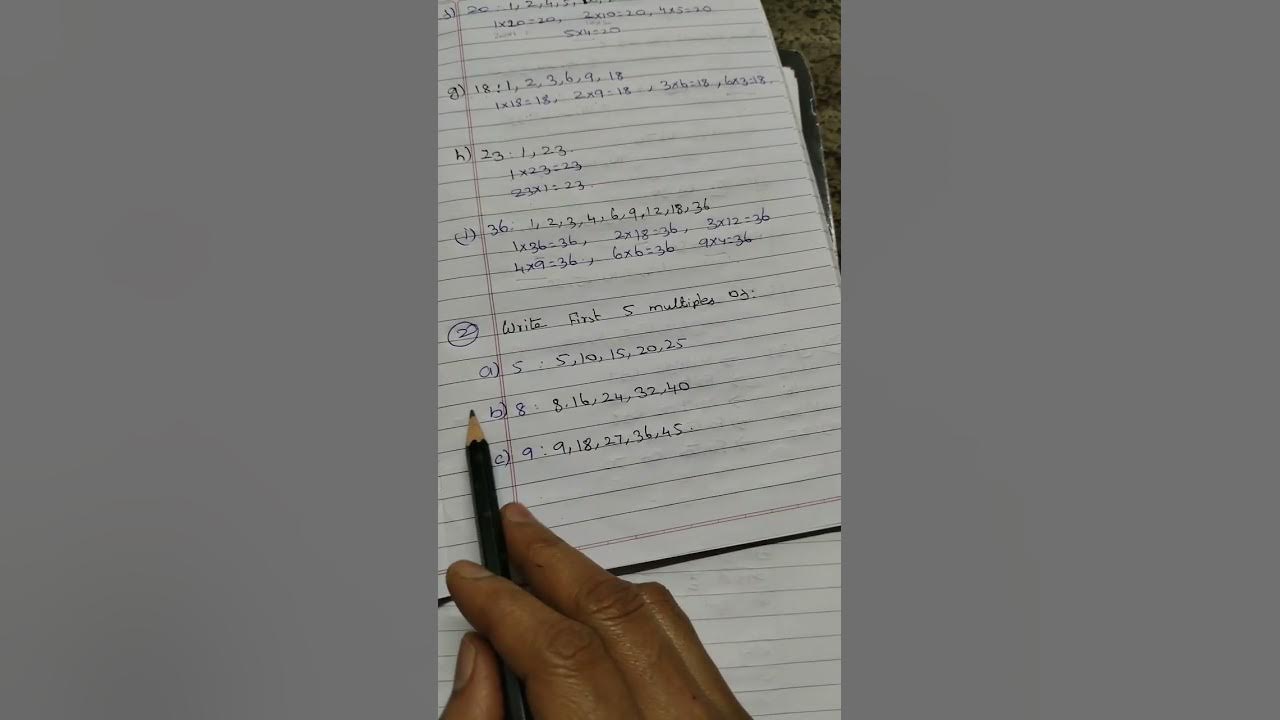 20 : 1, 2, 4, 5,
1x20=20, 2x10=20, 4x5=20
5x4=20
g) 18 : 1, 2, 3, 6, 9, 18
1x18=18, 2x9=18 , 3x6=18, 6x3=18.
h) 23 : 1, 23.
1x23=23
23x1=23.
i) 36 : 1, 2, 3, 4, 6, 9, 12, 18, 36
1x36=36, 2x18=36, 3x12=36
4x9=36, 6x6=36 9x4=36
2 Write First 5 multiples of:
a) 5 : 5, 10, 15, 20, 25
b) 8 : 8. 16, 24, 32, 40
c) 9 : 9, 18, 27, 36, 45.